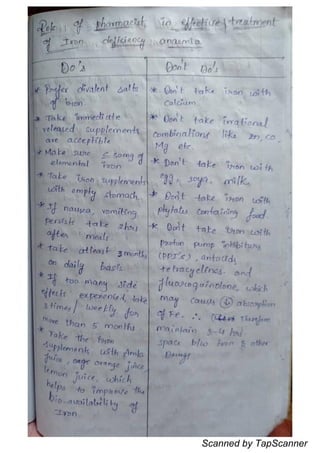 Role of pharmacist in effective treatment
of Iron deficiency anaemia
Do's
* Prefer divalent salts
of iron
* Take immediate
released supplements
are acceptible
* Make sure 50mg of
elemental iron
* Take iron supplements
with empty stomach
* If nausea, vomiting
persists take 2hrs
after meals
* Take atleast 3 months
on daily basis
* If too many side
effects experienced, take
3 times / weekly for
more than 5 months
* Take the iron
supplements with Amla
juice, orange juice
lemon juice. which
helps to improve the
bio-availability of
Iron.
Don't Do's
* Don't take iron with
Calcium.
* Don't take irrational
combinations like Zn, Co,
Mg etc.
* Don't take iron with
egg, soya, milk,
* Don't take iron with
phytates containing food.
* Don't take iron with
Proton pump inhibitors
(PPI's), antacids,
tetracyclines. and
fluoroquinolone, which
may causes ↓ absorption
of Fe. ∴ Therefore
maintain 3-4 hrs
space b/w Iron & other
Drugs.
Scanned by TapScanner